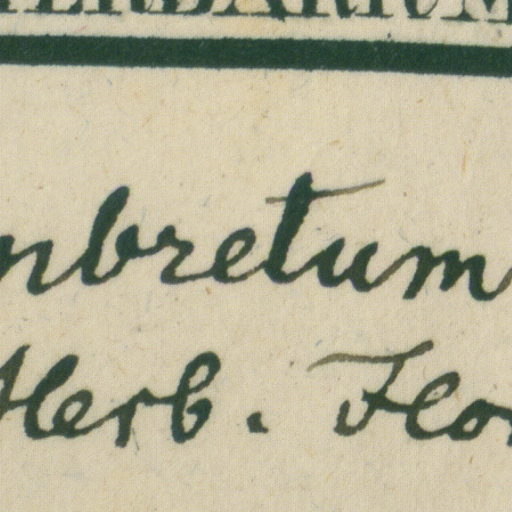 HERBARIUM
mbretum
Herb. Flor